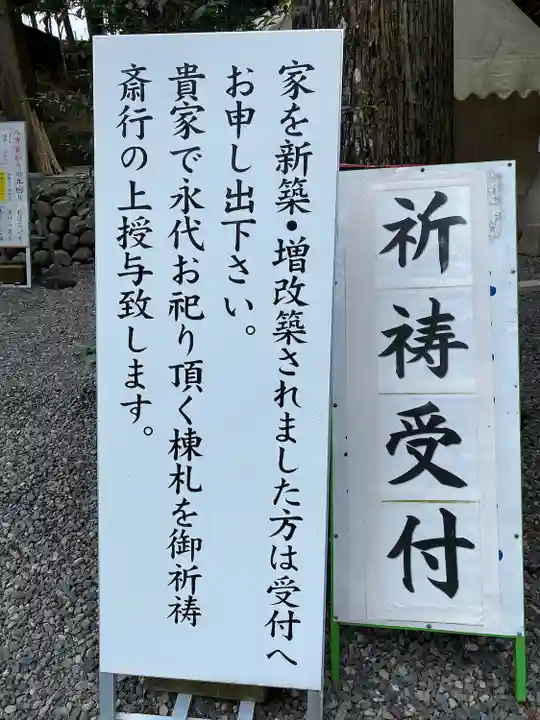 家を新築・増改築されました方は受付へ
お申し出下さい。
貴家で永代お祀り頂く棟札を御祈祷
斎行の上授与致します。
祈祷受付